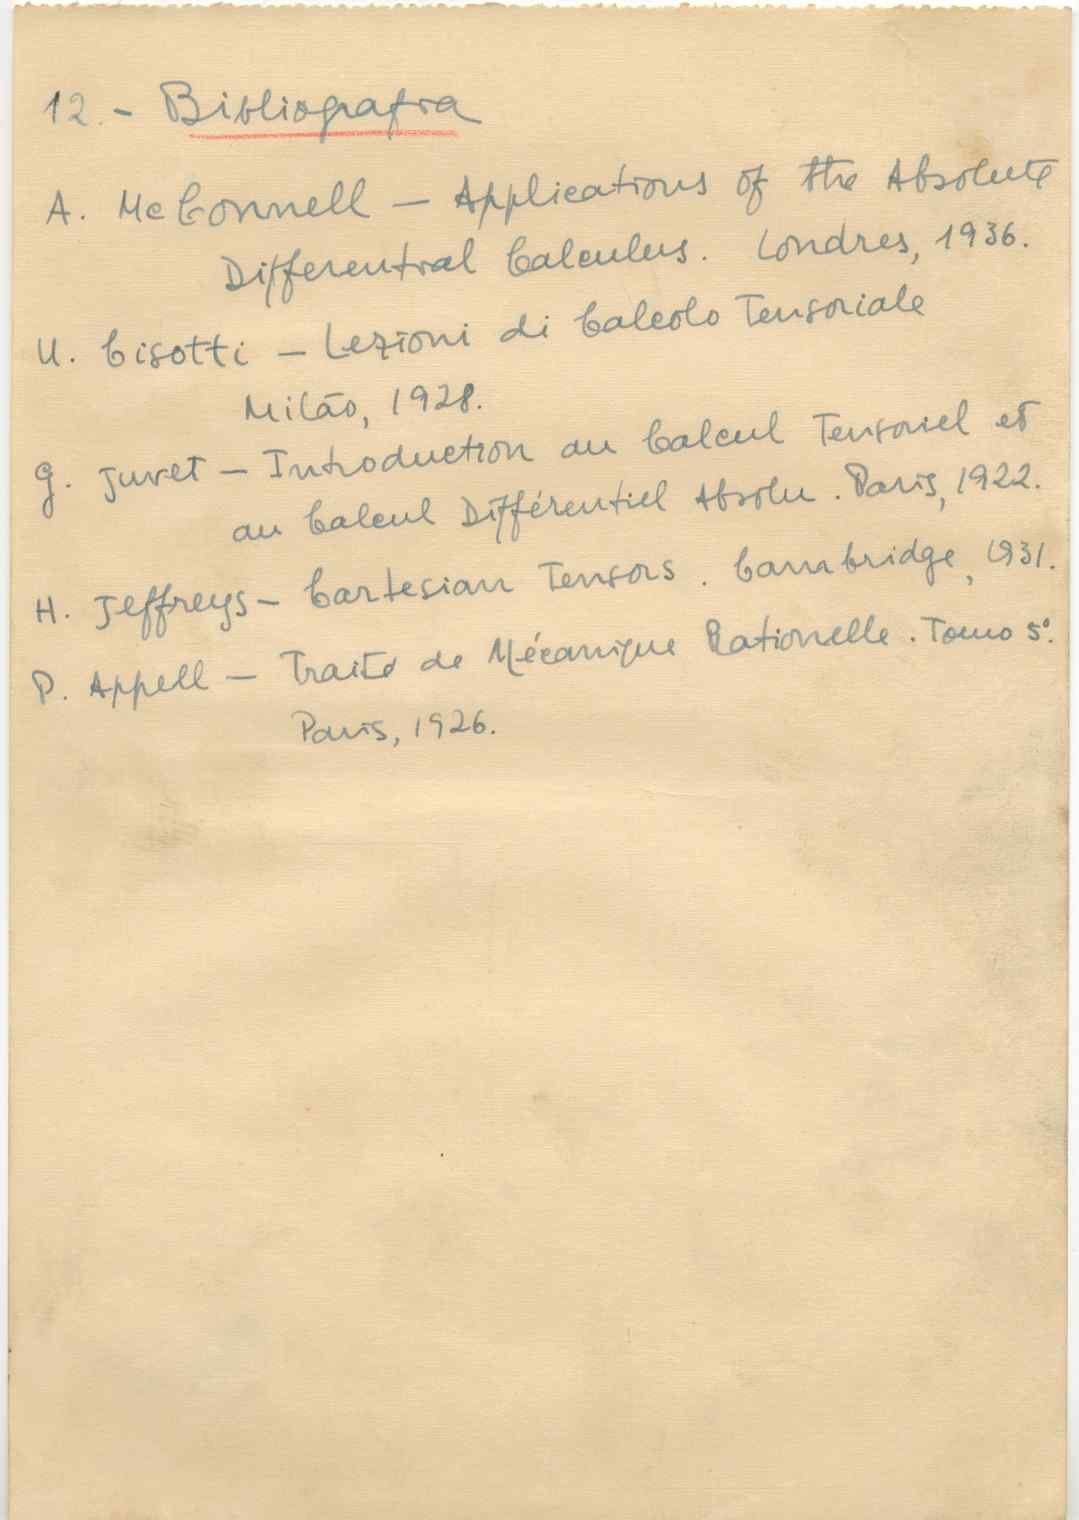 12. - Bibliografia
A. McConnell — Applications of the Absolute
Differential Calculus. Londres, 1936.
U. Cisotti — Lezioni di Calcolo Tensoriale
Milão, 1928.
G. Juvet — Introduction au Calcul Tensoriel et
au Calcul Différentiel Absolu. Paris, 1922.
H. Jeffreys — Cartesian Tensors. Cambridge, 1931.
P. Appell — Traité de Mécanique Rationelle. Tomo 5º.
Paris, 1926.